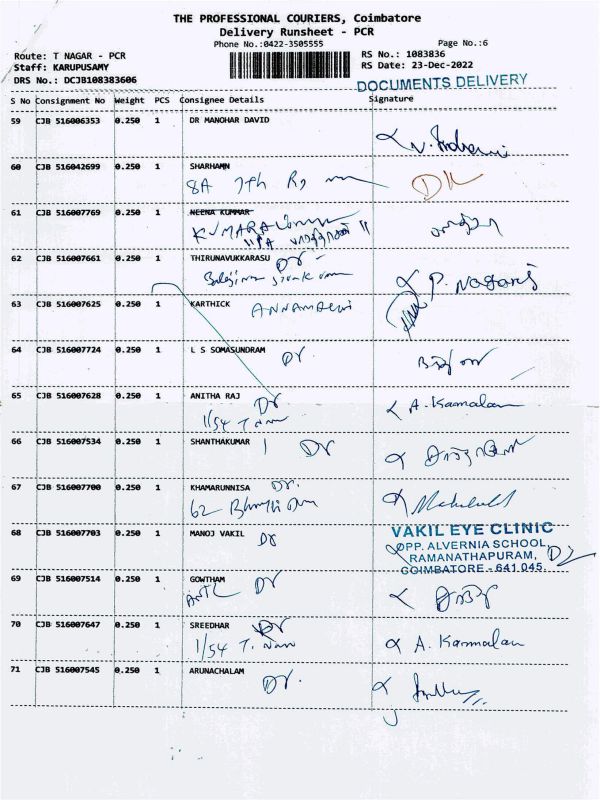 THE PROFESSIONAL COURIERS, Coimbatore
Delivery Runsheet - PCR
Phone No.:0422-3505555
Page No.:6
Route: T NAGAR - PCR
RS No.: 1083836
Staff: KARUPUSAMY
RS Date: 23-Dec-2022
DRS No.: DCJB108383606
DOCUMENTS DELIVERY
S No Consignment No Weight PCS Consignee Details Signature
59 CJB 516006353 0.250 1 DR MANOHAR DAVID
60 CJB 516042699 0.250 1 SHARHAMN
8A 7th
61 CJB 516007769 0.250 1 NEENA KUMMAR
KUMARA
62 CJB 516007661 0.250 1 THIRUNAVUKKARASU Dr
P. Nagaraj
63 CJB 516007625 0.250 1 KARTHICK
64 CJB 516007724 0.250 1 L S SOMASUNDRAM Dr.
65 CJB 516007628 0.250 1 ANITHA RAJ Dr A. Kammalan
1/54 T.
66 CJB 516007534 0.250 1 SHANTHAKUMAR Dr
67 CJB 516007700 0.250 1 KHAMARUNNISA Dr.
62
68 CJB 516007703 0.250 1 MANOJ VAKIL Dr
VAKIL EYE CLINIC
OPP. ALVERNIA SCHOOL,
RAMANATHAPURAM,
COIMBATORE - 641 045.
69 CJB 516007514 0.250 1 GOWTHAM Dr
70 CJB 516007647 0.250 1 SREEDHAR Dr A. Kammalan
1/54 T. Nav
71 CJB 516007545 0.250 1 ARUNACHALAM Dr.